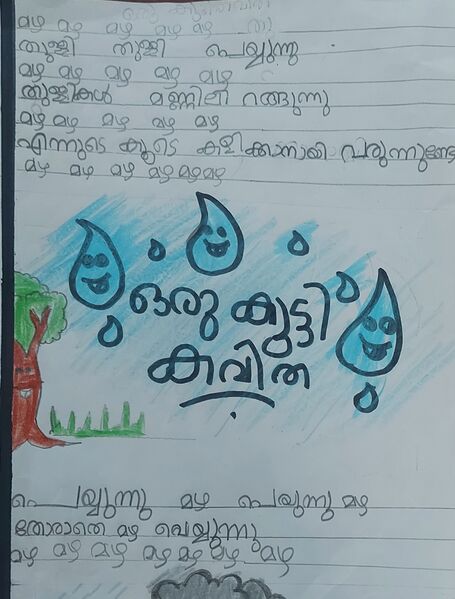 ഒരു കുട്ടികവിത
മഴ മഴ മഴ മഴ മഴ
തുള്ളി തുള്ളി പെയ്യുന്നു
മഴ മഴ മഴ മഴ മഴ
തുള്ളികൾ മണ്ണിലിറങ്ങുന്നു
മഴ മഴ മഴ മഴ മഴ
എന്നുടെ കൂടെ കളിക്കാനായി വരുന്നുണ്ടേ
മഴ മഴ മഴ മഴ മഴ മഴ
ഒരു കുട്ടി
കവിത
പെയ്യുന്നു മഴ പെയുന്നു മഴ
തോരാതെ മഴ പെയ്യുന്നു
മഴ മഴ മഴ മഴ മഴ മഴ മഴ